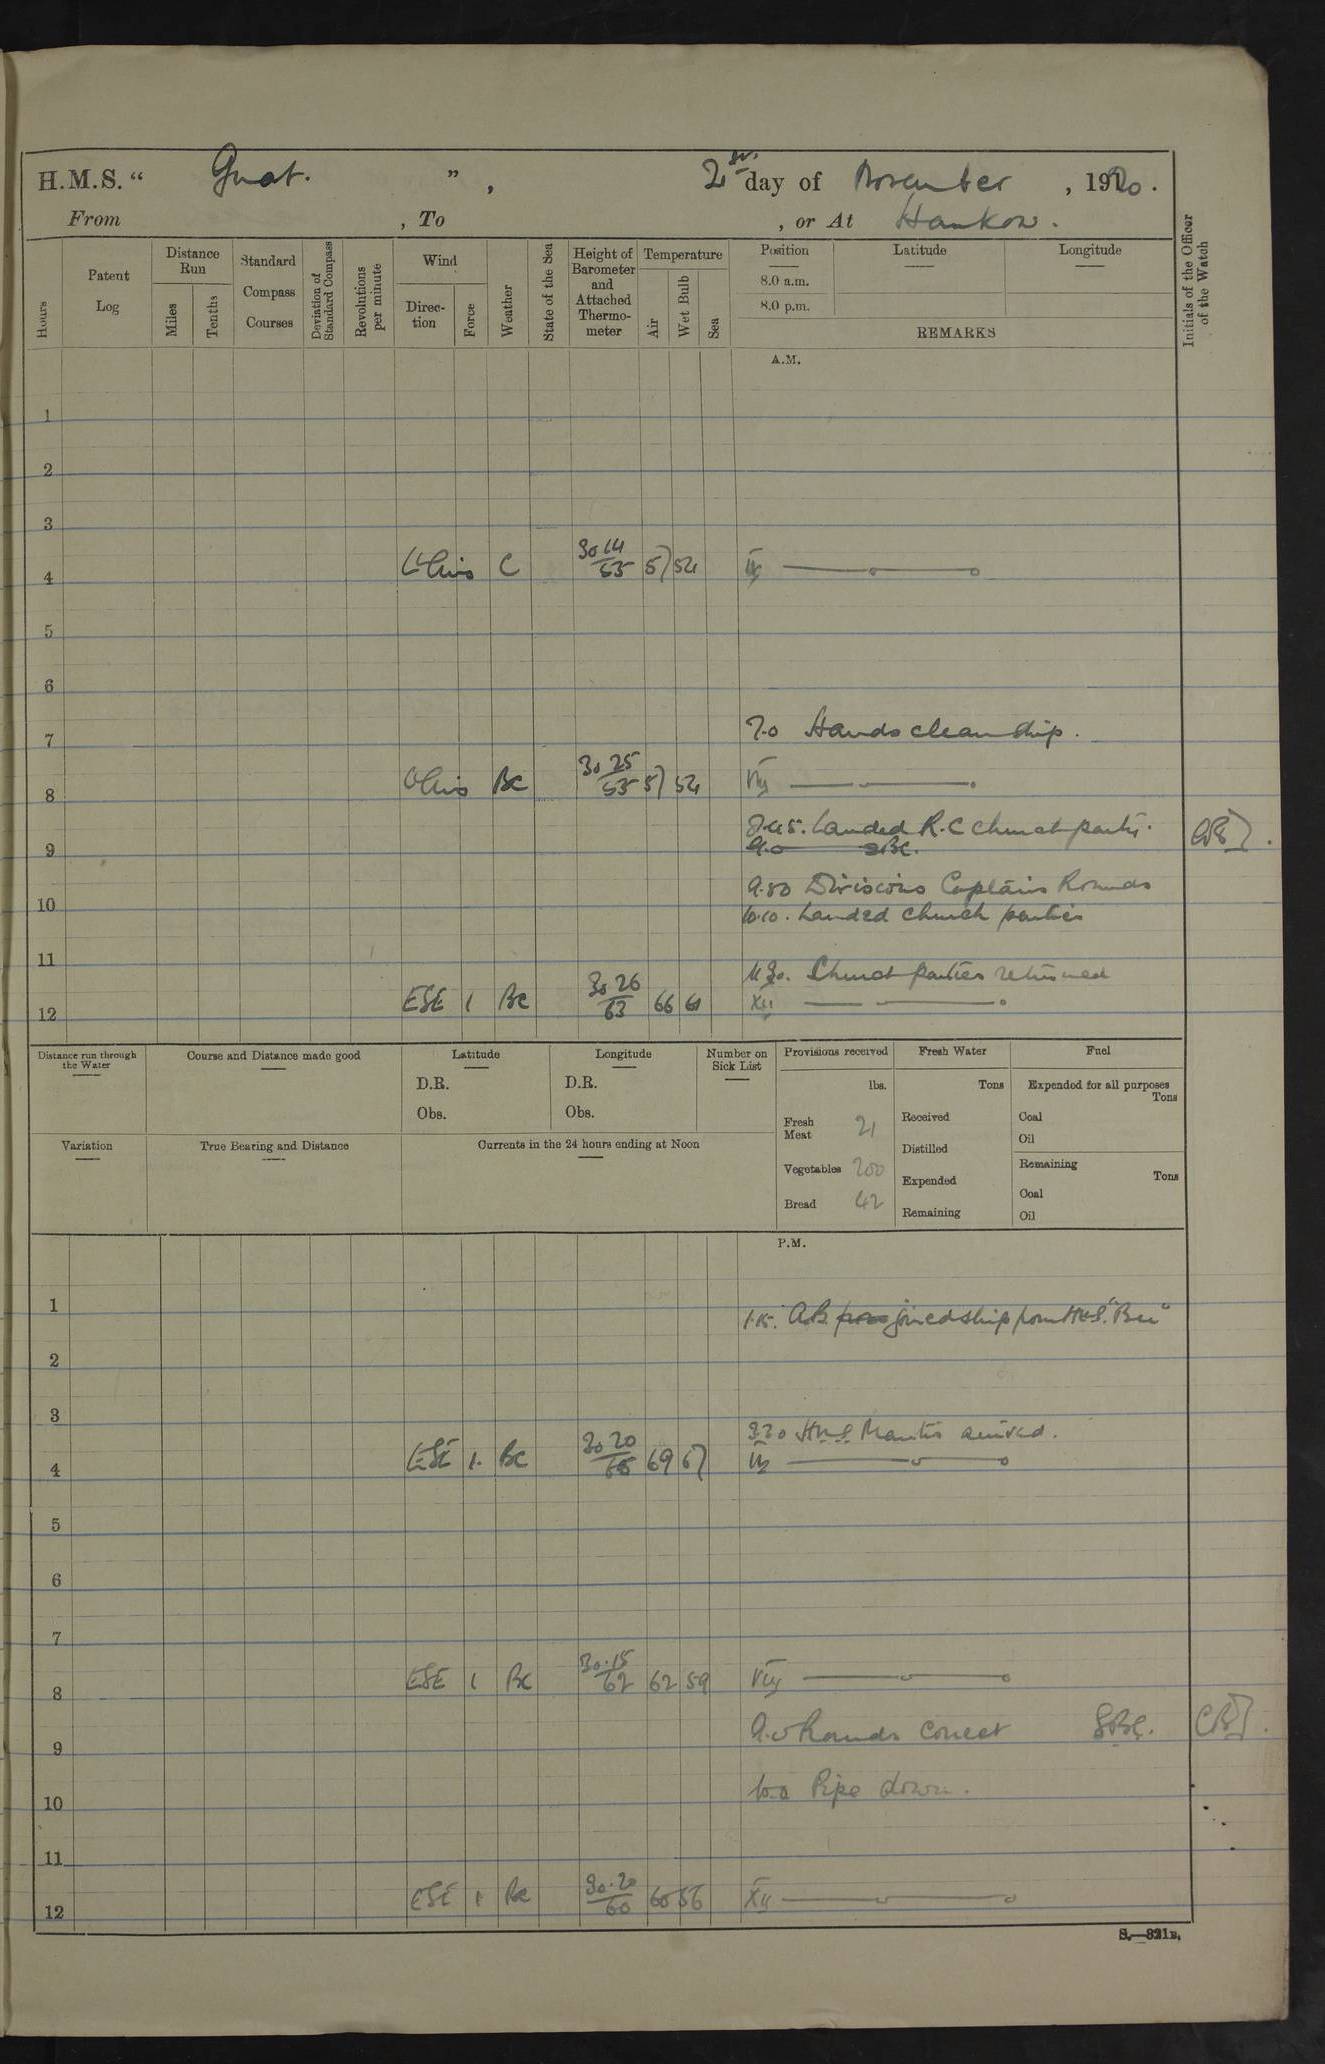 H.M.S. “ Gnat. ” , 21st day of November , 1920 .
From , To , or At Hankow .
Hours
Patent Log
Distance Run
Miles
Tenths
Standard Compass Courses
Deviation of Standard Compass
Revolutions per minute
Wind
Direction
Force
Weather
State of the Sea
Height of Barometer and Attached Thermometer
Temperature
Air
Wet Bulb
Sea
Position
8.0 a.m.
8.0 p.m.
Latitude
Longitude
REMARKS
Initials of the Officer of the Watch
A.M.
1
2
3
4 C 30 14 / 55 57 54
5
6
7.0 Hands clean ship.
7
8 BC 30 25 / 55 57 54 VIII
8.45. Landed R.C Church party.
9
9.30 Divisions Captains Rounds
10
10.10. Landed Church parties
11
11.30. Church parties returned
12 ESE 1 BC 30 26 / 63 66 61 XII
Distance run through the Water
Course and Distance made good
Latitude
D.R.
Obs.
Longitude
D.R.
Obs.
Number on Sick List
Provisions received
lbs.
Fresh Meat 21
Vegetables 200
Bread 42
Fresh Water
Tons
Received
Distilled
Expended
Remaining
Fuel
Expended for all purposes
Tons
Coal
Oil
Remaining
Tons
Coal
Oil
Variation
True Bearing and Distance
Currents in the 24 hours ending at Noon
P.M.
1
1.15. A.B. joined ship from H.M.S. "Bee"
2
3
3.20 H.M.S. Mantis arrived.
4 ESE 1. BC 30 20 / 68 69 67
5
6
7
8 ESE 1 BC 30.15 / 62 62 59 VIII
9.0 Rounds correct
9
10.0 Pipe down.
10
11
12 ESE 1 BC 30.20 / 60 60 56 XII
S.—321B.